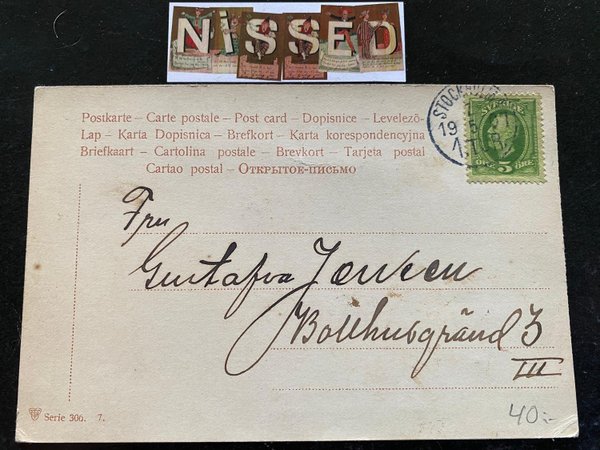 NISSED
Postkarte – Carte postale – Post card – Dopisnice – Levelező-
Lap – Karta Dopisnica – Brefkort – Karta korespondencyjna
Briefkaart – Cartolina postale – Brevkort – Tarjeta postal
Cartao postal – Открытое-письмо
STOCKHOLM
19
1.T.
SVERIGE
ÖRE 5 ÖRE
Fru
Gustafva Jansson
Bollhusgränd 3
III
Serie 306. 7.
40:-